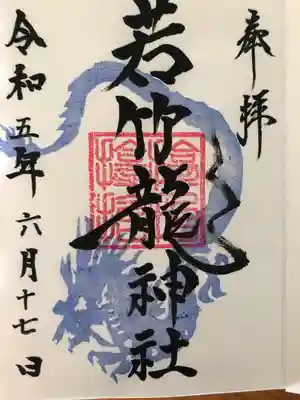 奉拝
若竹龍神社
令和五年六月十七日